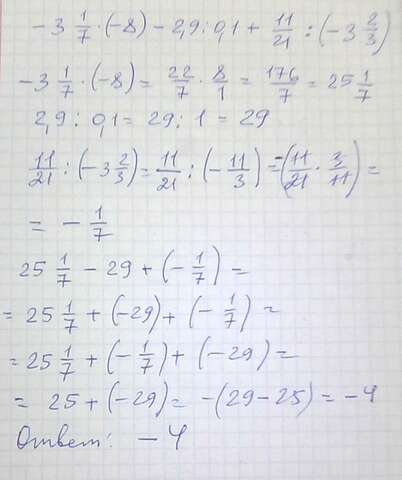 -3 1/7 · (-8) - 2,9 : 0,1 + 11/21 : (-3 2/3)
-3 1/7 · (-8) = 22/7 · 8/1 = 176/7 = 25 1/7
2,9 : 0,1 = 29 : 1 = 29
11/21 : (-3 2/3) = 11/21 : (-11/3) = -(11/21 · 3/11) =
= - 1/7
25 1/7 - 29 + (- 1/7) =
= 25 1/7 + (-29) + (- 1/7) =
= 25 1/7 + (- 1/7) + (-29) =
= 25 + (-29) = -(29 - 25) = -4
Ответ: -4